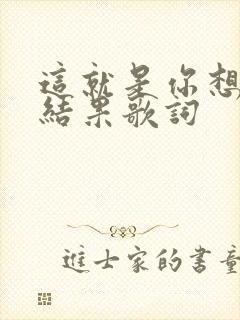 這就是你想
結果歌詞
進士家的書童